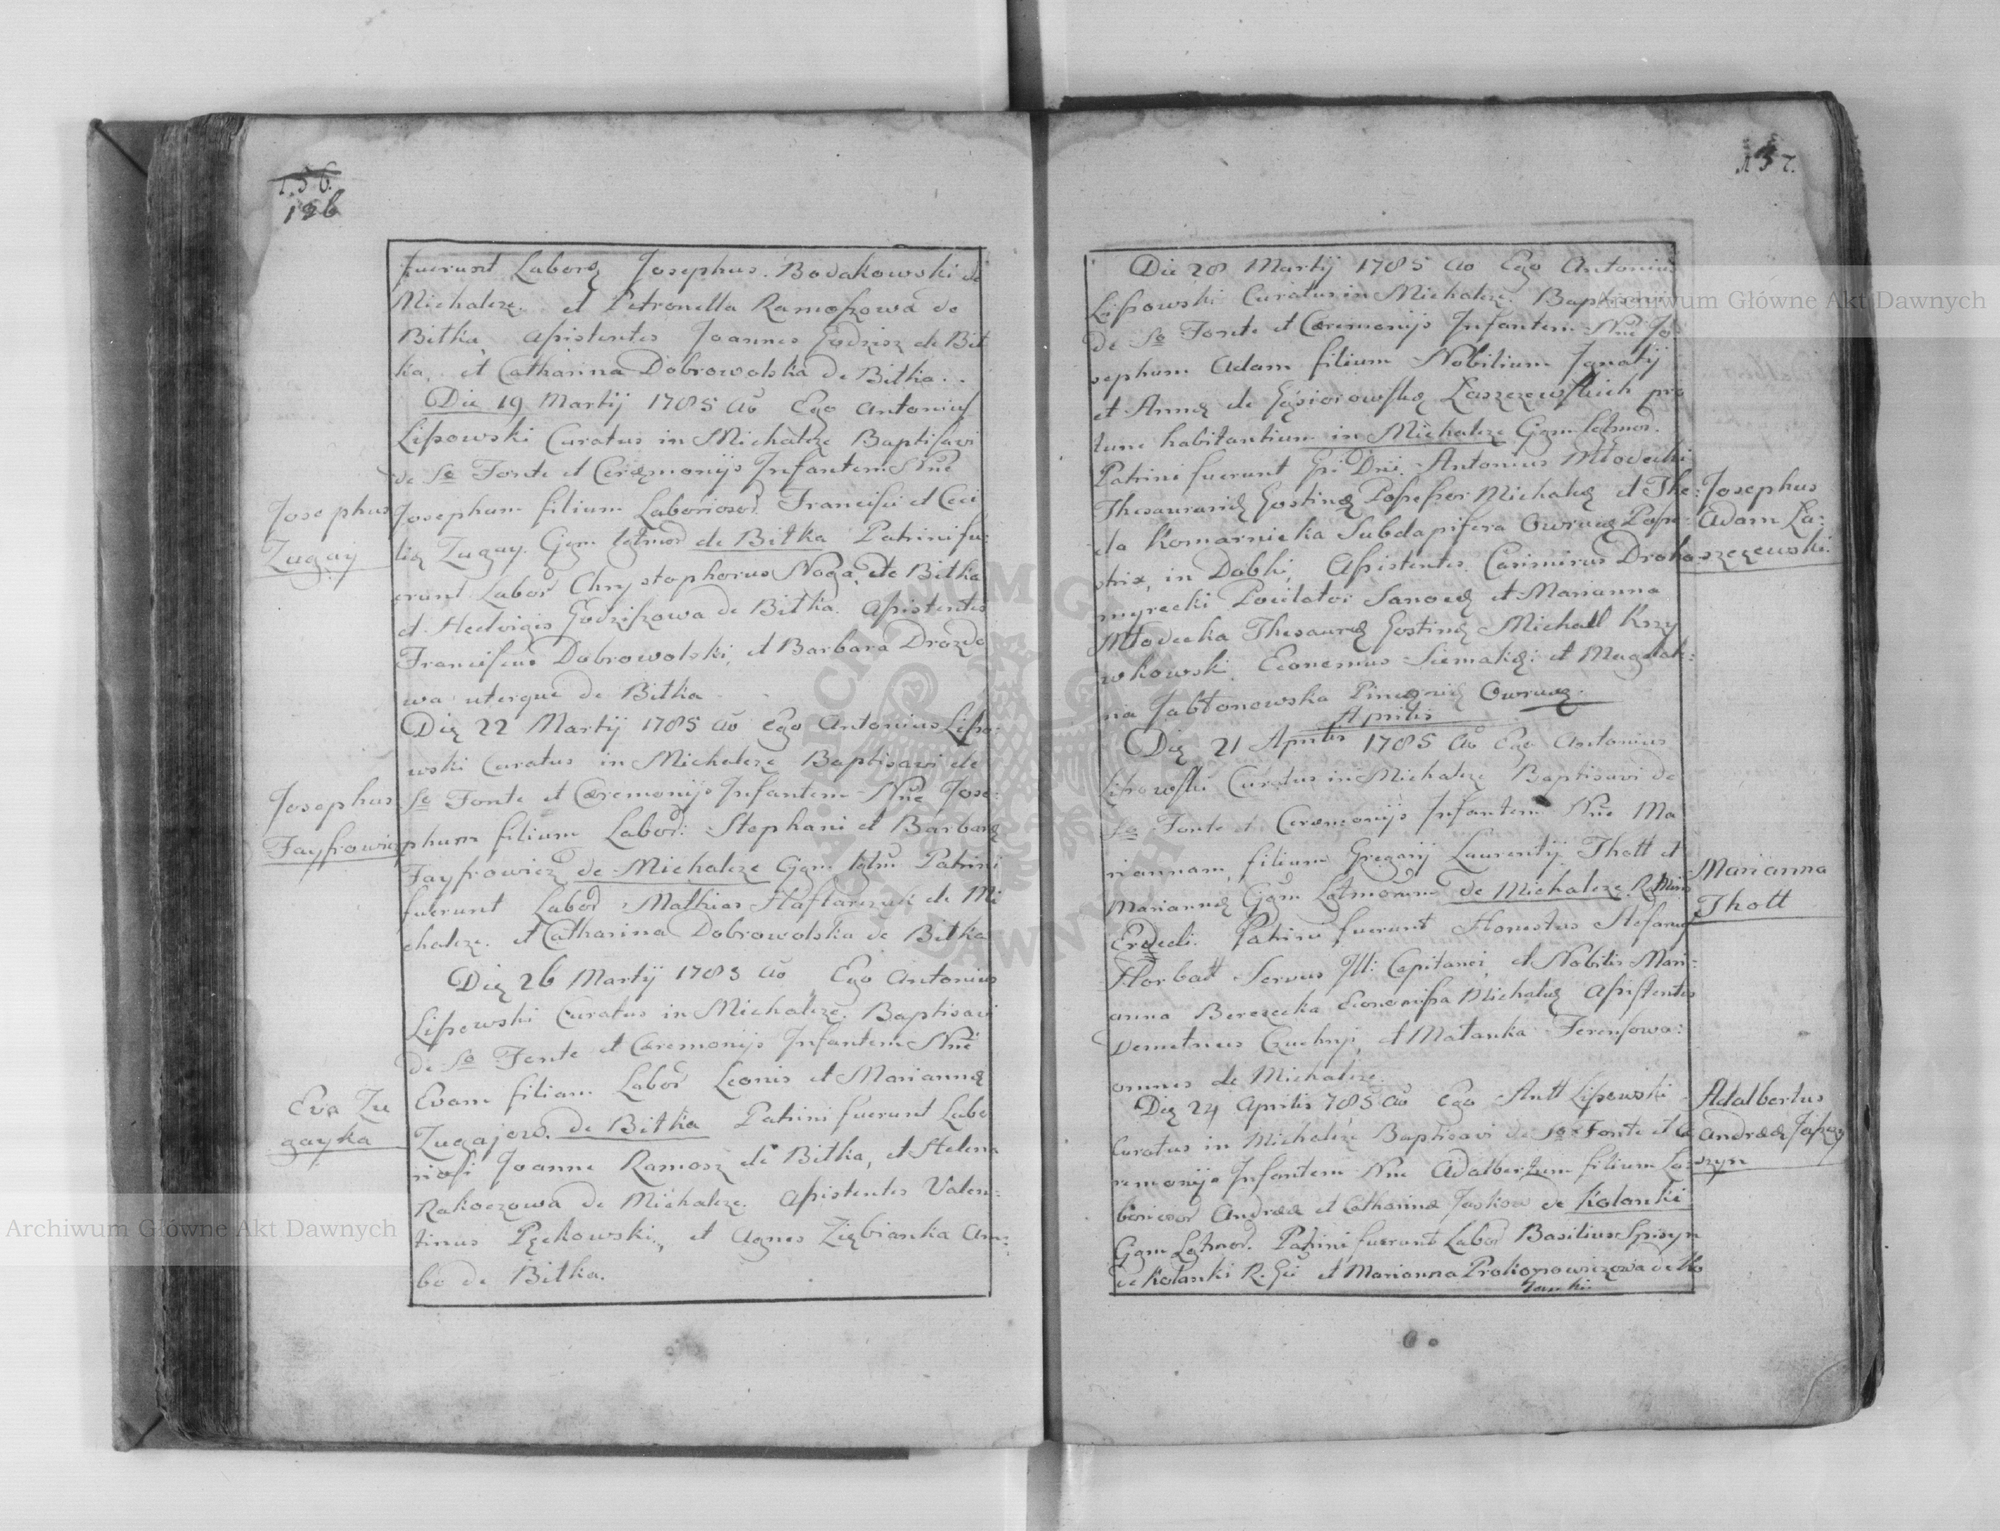 156.
156
fuerunt Laborę Josephus Bodakowski de
Michalcze et Petronella Ramoszowa de
Bitka, Assistentes Joannes Godzisz de Bit
ka, et Catharina Dobrowolska de Bitka.
Die 19 Martij 1785 Aō Ego Antonius
Lipowski Curatus in Michalcze Baptisavi
de So Fonte et Ceręmonijs Infantem Nne
Josephum filium Laboriosor Francisci et Ceci
lię Zugay. Ggm Lgtmor de Bitka Patrini fu:
erunt Labor Chrystophorus Noga, de Bitka
et Hedvigis Godziszowa de Bitka. Assistentes
Franciscus Dobrowolski, et Barbara Drozdo
wa uterque de Bitka
Josephus
Zugay
Dię 22 Martij 1785 Aō Ego Antonius Lipo:
wski Curatus in Michalcze Baptisavi de
So Fonte et Cęremonijs Infantem Nne Jose:
phum filium Labor: Stephani et Barbarę
Fayfrowicz de Michalcze Ggm lgtm Patrini
fuerunt Labor Mathias Haftarczuk de Mi
chalcze. et Catharina Dobrowolska de Bitka
Josephus
Fayfrowicz
Dię 26 Martij 1785 Aō Ego Antonius
Lipowski Curatus in Michalcze. Baptisavi
de So Fonte et Cęremonijs Infantem Nne
Evam filiam Labor Leonis et Mariannę
Zugajow. de Bitka Patrini fuerunt Labo
riosi Joanne Ramosz de Bitka, et Helena
Rakoczowa de Michalcze. Assistentes Valen:
tinus Pękowski, et Agnes Ziębianka Am:
bo de Bitka.
Eva Zu
gayka
157.
Die 28 Martij 1785 Aō Ego Antonius
Lipowski Curatus in Michalcze Baptisavi
de So Fonte et Cęremonijs Infantem Nne Jo
sephum Adam filium Nobilium Ignatij
et Annę de Gąsiorowskę Łaszczewskich pro
tunc habitantium in Michalcze Ggm lgtmor.
Patrini fuerunt Dnī Antonius Młodecki
Thesaurarię Gostinę Possessor Michalcę et The:
cla Komarnicka Subdapifera Owrucę Posse:
strix, in Dobki, Assistentes Casimirus Droho
myrecki Pocilator Sanocę et Marianna
Młodecka Thesaurę Gostinę Michall Krzy
wkowski Economus Siemakę: et Magdale:
na Jabłonowska Pincernię Owrucę.
Josephus
Adam Ła:
szczewski
Aprilis
Dię 21 Aprilis 1785 Aō Ego Antonius
Lipowski Curatus in Michalcze Baptisavi de
So Fonte et Ceręmonijs Infantem Nne Ma
riannam, filium Gregorij Laurentij Thott et
Mariannę Ggm Lgtmorum de Michalcze
Patrini fuerunt Honestus Stefanus
Horbatt Servus Ill: Capitanei, et Nobilis Mari:
anna Berezecka Economissa Michalcę Assistentes
Demetrius et Małanka Ferensowa:
omnes de Michalcze
Marianna
Thott
Dię 24 Aprilis 785 Aō Ego Antt Lipowski
Curatus in Michalcze Baptisavi de So Fonte et Cę
remonijs Infantem Nne Adalbertum filium La:
borioror Andreæ et Catharinæ Jaskow de Kolanki
Ggm Lgtmor. Patrini fuerunt Labor Basilius Spisyn
de Kolanki R. Gī et Marianna Prokopowiczowa de Ko
lanki
Adalbertus
Andreæ
szyn
Archiwum Główne Akt Dawnych
Archiwum Główne Akt Dawnych